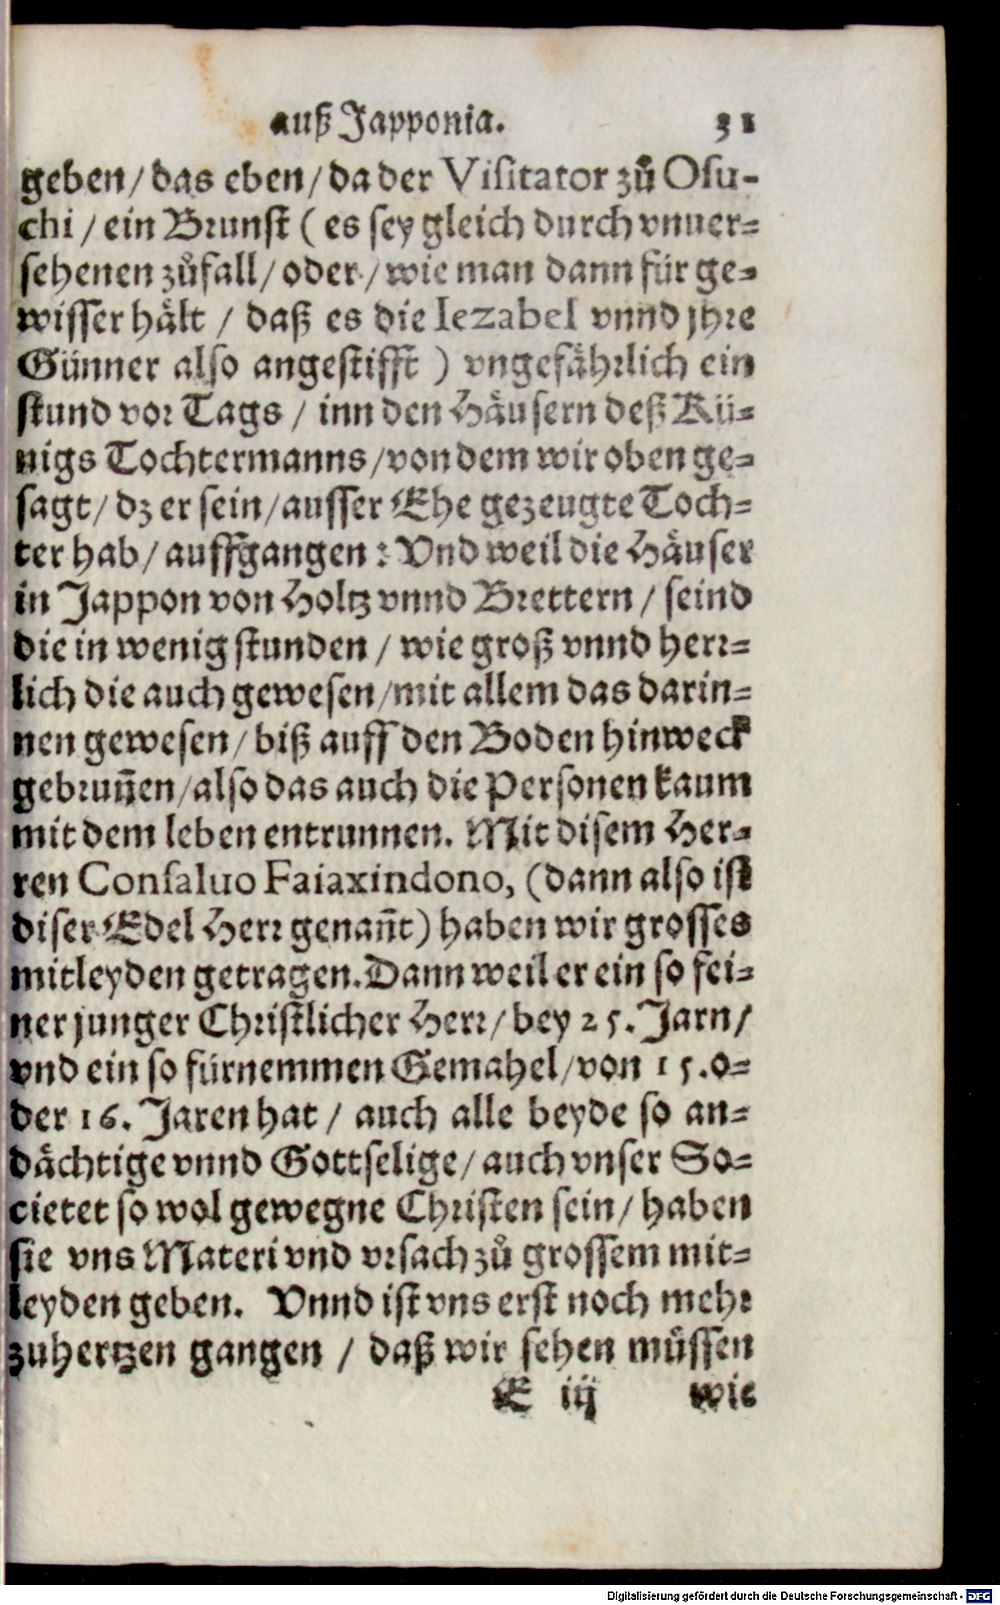 auß Japponia. 31
geben/ das eben/ da der Visitator zů Osu-
chi / ein Brunst ( es sey gleich durch vnuer-
sehenen zůfall/ oder / wie man dann für ge-
wisser hält / daß es die Iezabel vnnd jhre
Günner also angestifft ) vngefährlich ein
stund vor Tags / inn den Häusern deß Kü-
nigs Tochtermanns/ von dem wir oben ge-
sagt/ dz er sein/ ausser Ehe gezeugte Toch-
ter hab/ auffgangen : Vnd weil die Häuser
in Jappon von Holtz vnnd Brettern / seind
die in wenig stunden / wie groß vnnd herr-
lich die auch gewesen/ mit allem das darin-
nen gewesen/ biß auff den Boden hinweck
gebrun̄en/ also das auch die Personen kaum
mit dem leben entrunnen. Mit disem Her-
ren Consaluo Faiaxindono, (dann also ist
diser Edel Herr genan̄t) haben wir grosses
mitleyden getragen. Dann weil er ein so fei-
ner junger Christlicher Herr/ bey 25. Jarn/
vnd ein so fürnemmen Gemahel/ von 15. o-
der 16. Jaren hat / auch alle beyde so an-
dächtige vnnd Gottselige/ auch vnser So-
cietet so wol gewegne Christen sein/ haben
sie vns Materi vnd vrsach zů grossem mit-
leyden geben. Vnnd ist vns erst noch mehr
zuhertzen gangen / daß wir sehen müssen
E iij wie
Digitalisierung gefördert durch die Deutsche Forschungsgemeinschaft - DFG